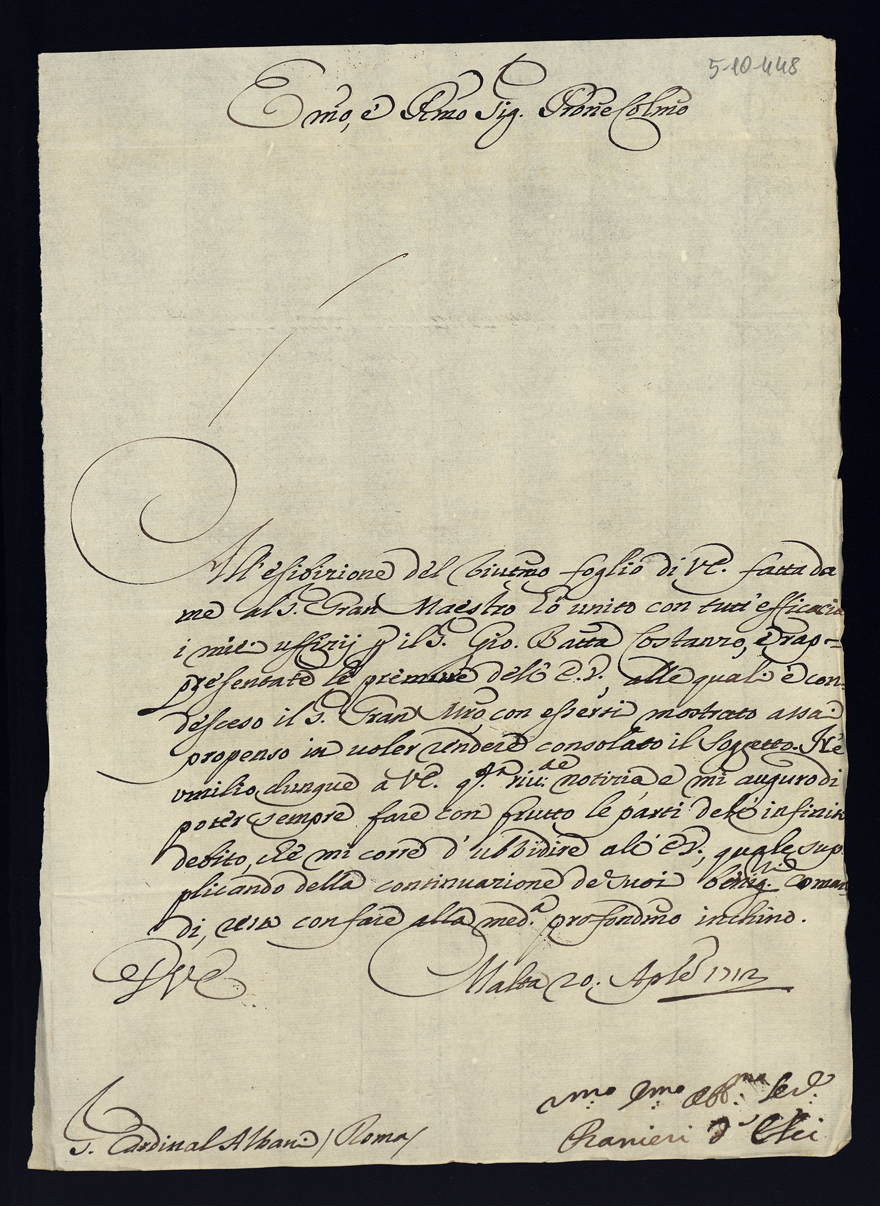 5-10-448
Emo, è Rmo Sig. Prone Colmo
All'esibizione del biutmo foglio di V.E. fatta da
me al S. Gran Maestro hò unito con tutt'efficacia
i miei uffizij p il S. Gio. Batta Costanzo, è rap=
presentate le premure dell'E.V., alle quali è con=
desceso il S. Gran Mro, con essersi mostrato assai
propenso in voler rendere consolato il Soggetto. Nè
umilio dunque à V.E. qsta riu.te notizia e mi auguro di
poter sempre fare con frutto le parti dell'infinito
debito, chè mi corre d'ubbidire all'E.V., quale sup
plicando della continuazione de suoi benig.mi coman
di, resto con fare alla med.a profondmo inchino.
D V E
Malta 20. Aple 1712
Umo Dmo Obb.mo Ser.e
Ranieri d'Elci
S. Cardinal Albani / Roma /